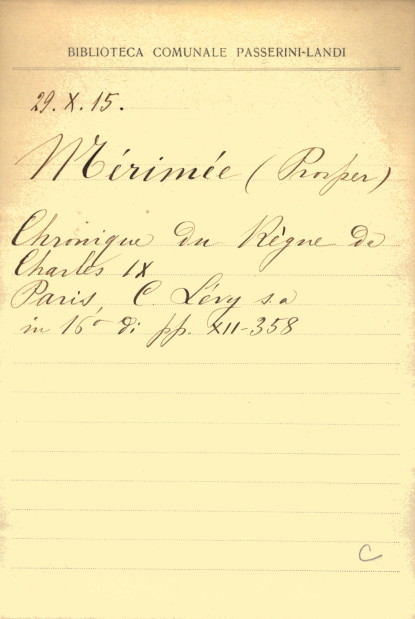 BIBLIOTECA COMUNALE PASSERINI-LANDI
29.X.15.
Mérimée (Prosper)
Chronique du Règne de
Charles IX
Paris, C. Lévy s.a
in 16º di pp. XII-358
C